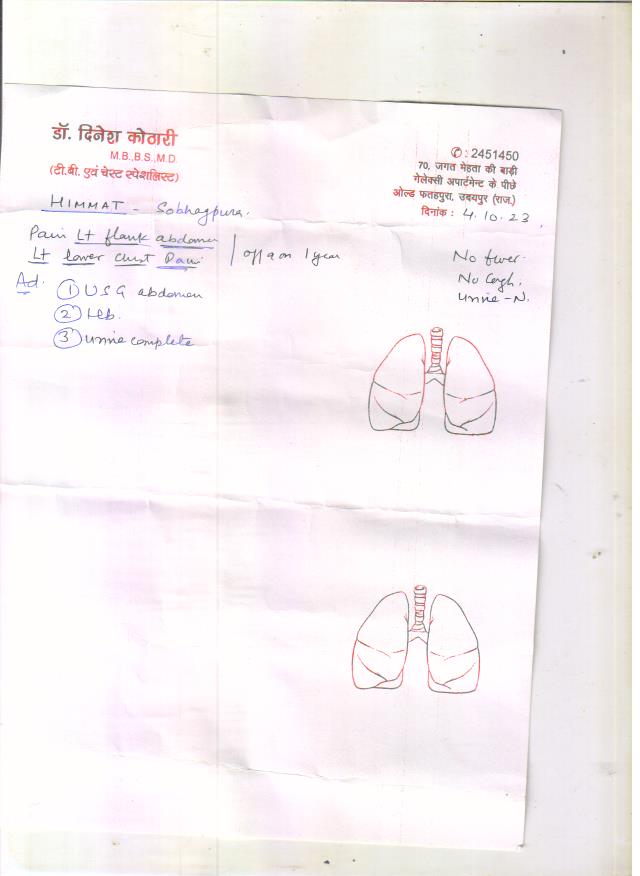 डॉ. दिनेश कोठारी
M.B.,B.S.,M.D.
(टी.बी. एवं चेस्ट स्पेशलिस्ट)
✆ : 2451450
70, जगत मेहता की बाड़ी
गेलेक्सी अपार्टमेन्ट के पीछे
ओल्ड फतहपुरा, उदयपुर (राज.)
दिनांक : 4.10.23
HIMMAT - Sobhagpura.
Pain Lt flank abdomen
Lt lower chest Pain / off a on 1 year
No fever.
No Cough.
Urine - N.
Ad.
① USG abdomen
② Hb.
③ Urine complete